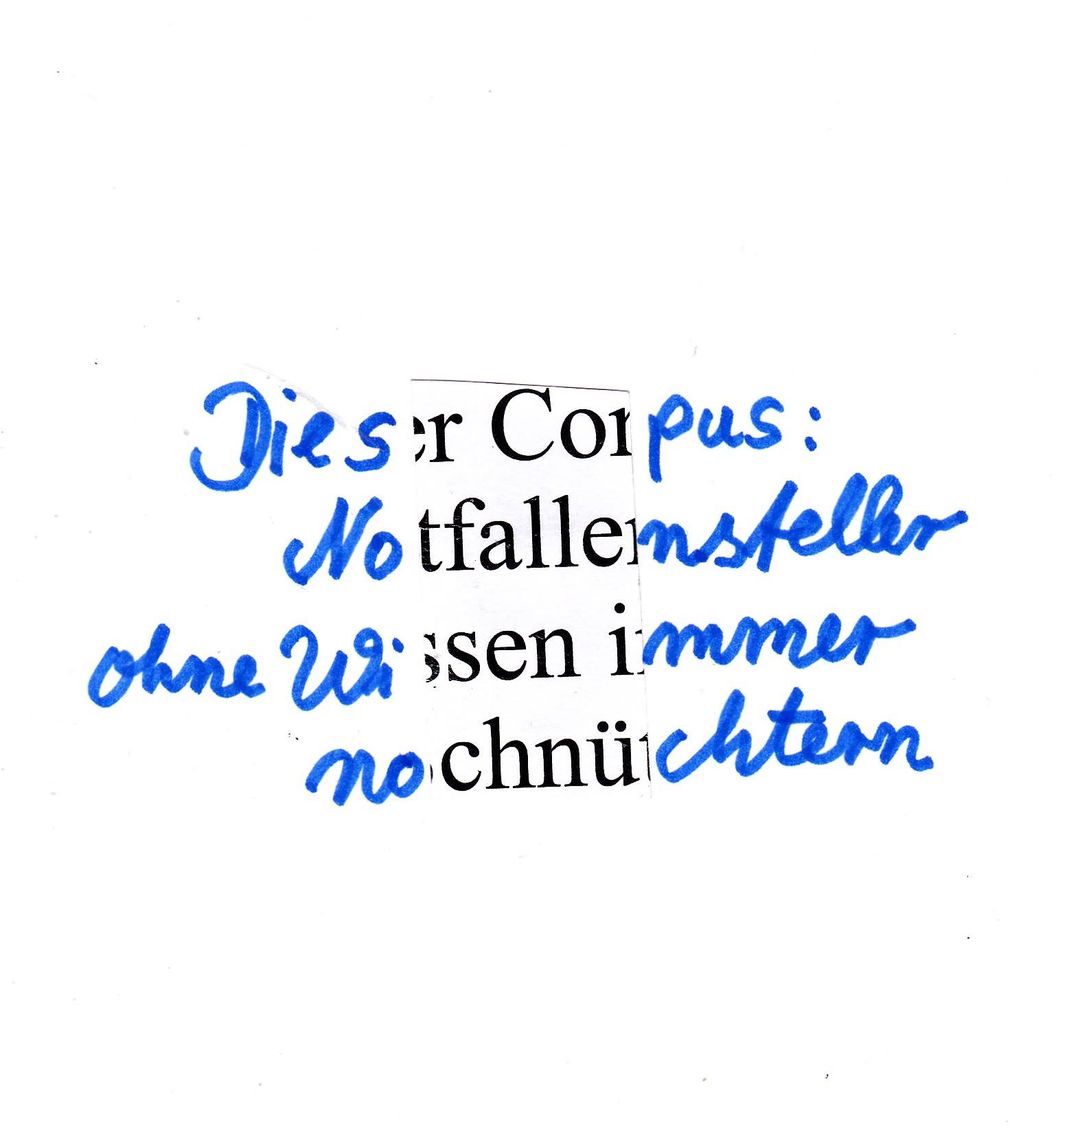 Dieser Corpus:
Notfallensteller
ohne Wissen immer
nochnüchtern